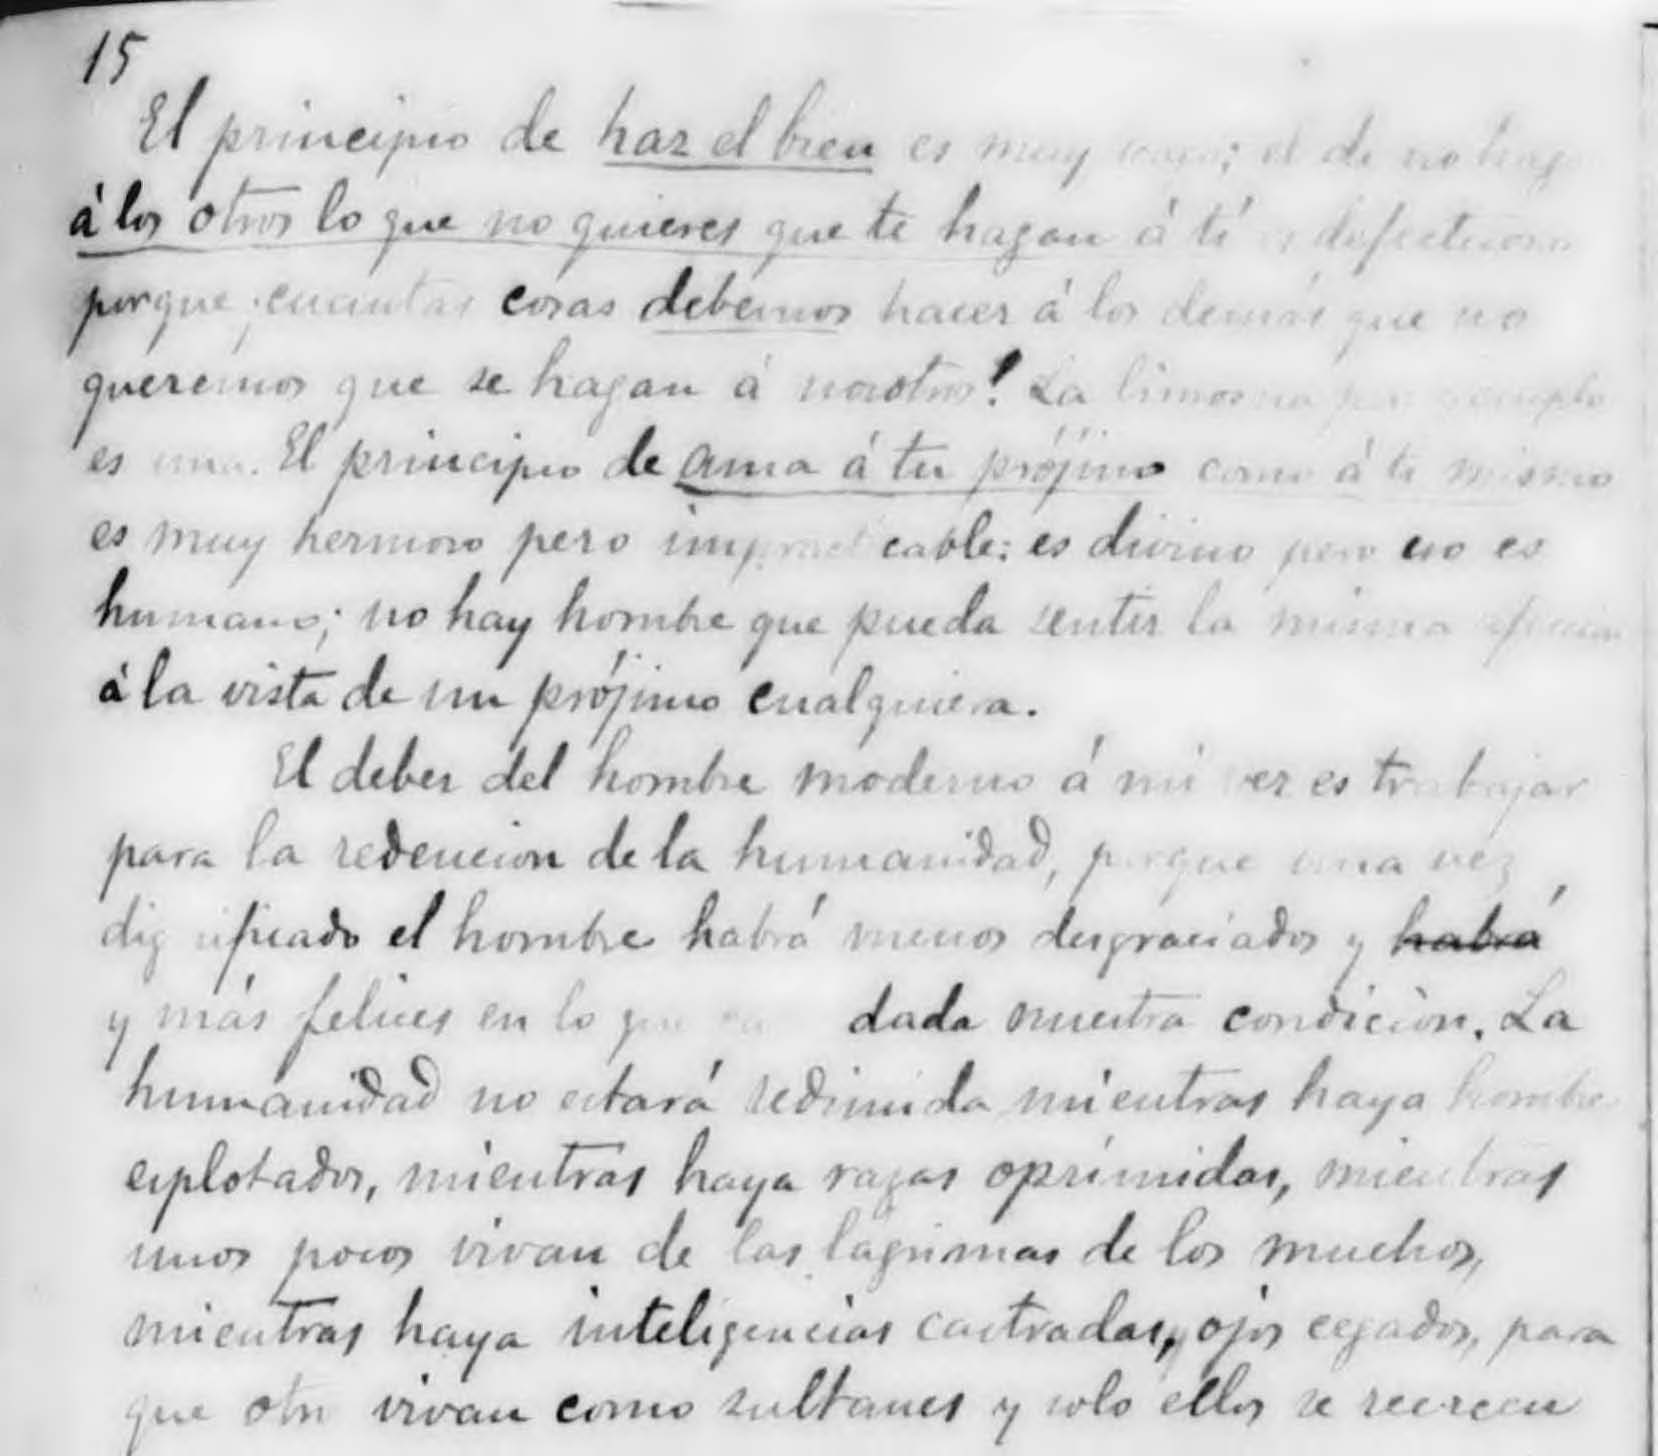 15
El principio de haz el bien es muy vago; el de no hagas
á los otros lo que no quieres que te hagan á tí es defectuoso
porque ¡cuantas cosas debemos hacer á los demás que no
queremos que se hagan á nosotros! La limosna por ejemplo
es una. El principio de ama á tu prójimo como á ti mismo
es muy hermoso pero impracticable: es divino pero no es
humano; no hay hombre que pueda sentir la misma afeccion
á la vista de un prójimo cualquiera.
El deber del hombre moderno á mi ver es trabajar
para la redencion de la humanidad, porque una vez
dignificado el hombre habrá menos desgraciados y habrá
y más felices en lo que dada nuestra condición. La
humanidad no estará redimida mientras haya hombres
esplotados, mientras haya razas oprimidas, mientras
unos pocos vivan de las lágrimas de los muchos,
mientras haya inteligencias castradas, y ojos cegados, para
que otros vivan como sultanes y solo ellos se recreen